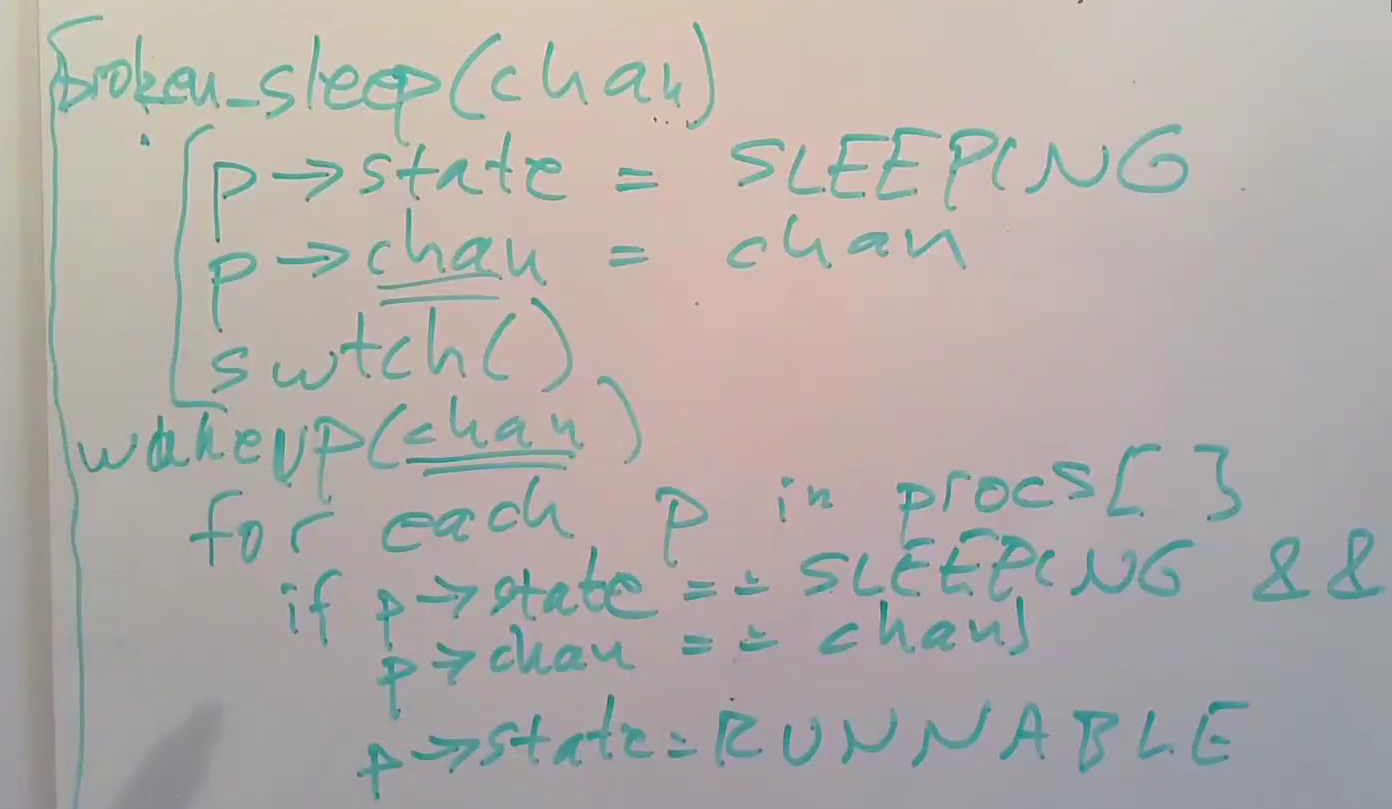 broken_sleep(chan)
p→state = SLEEPING
p→chan = chan
swtch()
wakeup(chan)
for each p in procs[]
if p→state == SLEEPING &&
p→chan == chan)
p→state=RUNNABLE